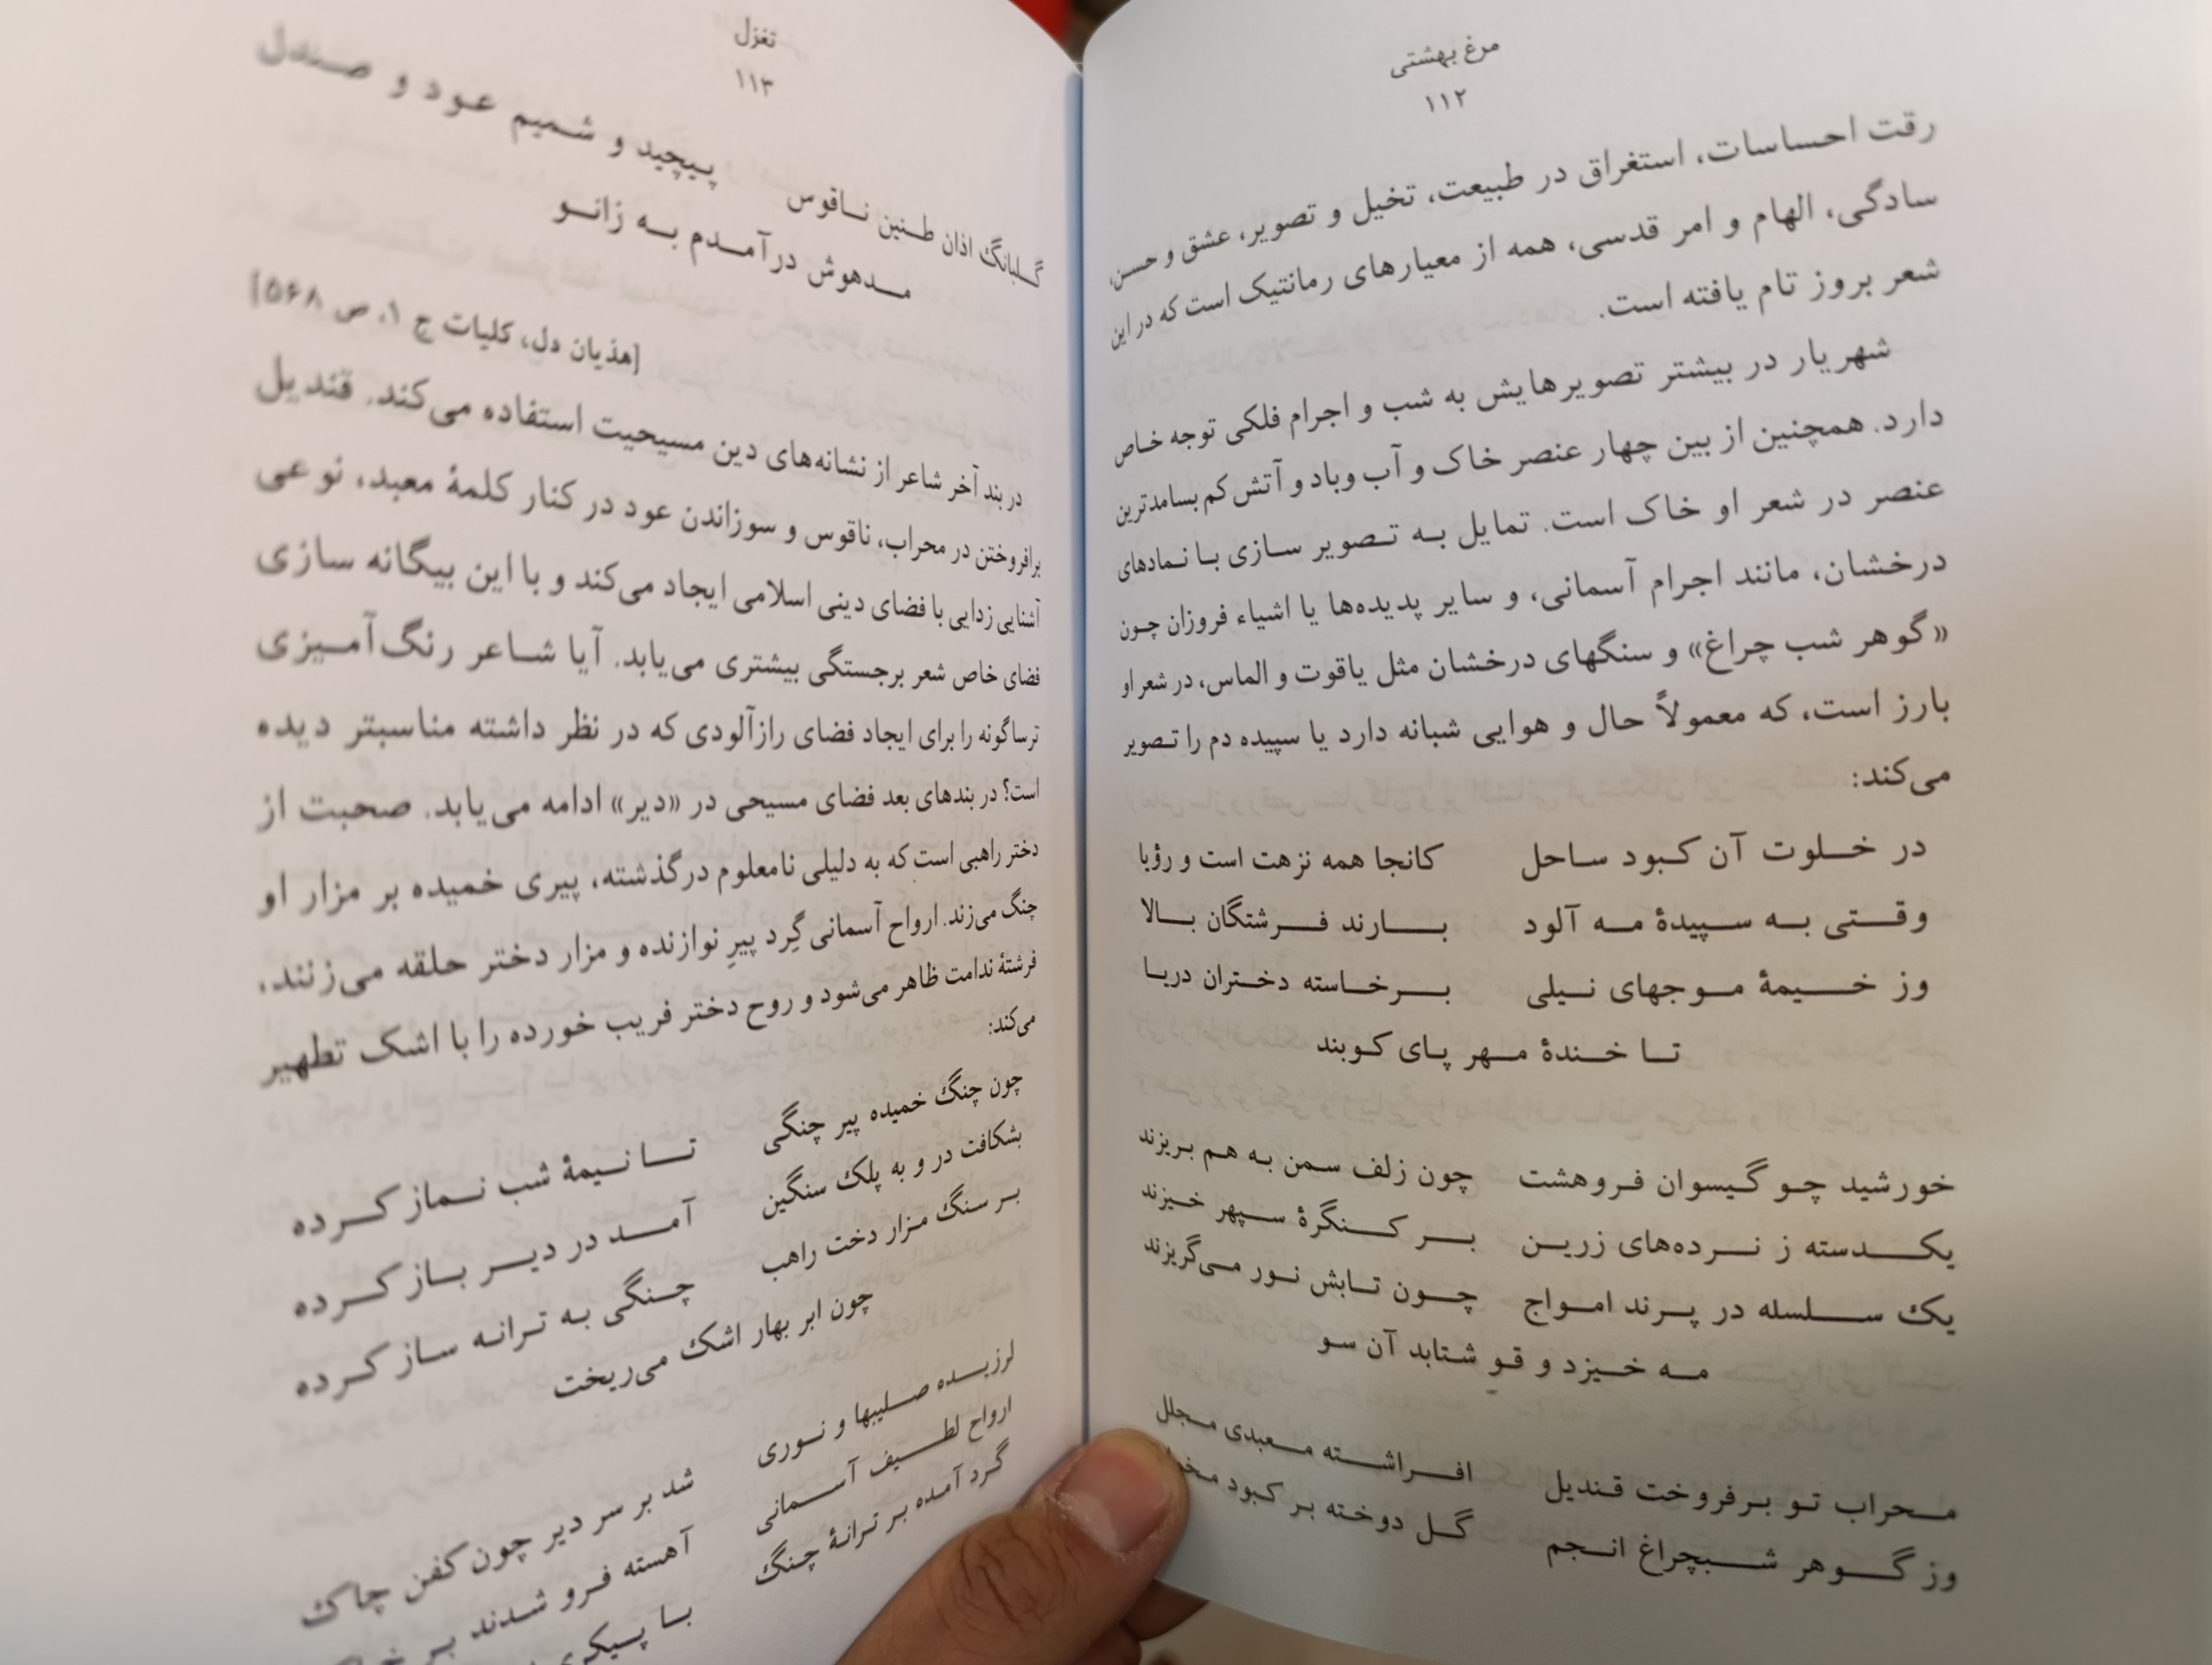 مرغ بهشتی
۱۱۲
رقت احساسات، استغراق در طبیعت، تخیل و تصویر، عشق و حسن،
سادگی، الهام و امر قدسی، همه از معیارهای رمانتیک است که در این
شعر بروز تام یافته است.
شهریار در بیشتر تصویرهایش به شب و اجرام فلکی توجه خاص
دارد. همچنین از بین چهار عنصر خاک و آب وباد و آتش کم بسامدترین
عنصر در شعر او خاک است. تمایل به تصویر سازی با نمادهای
درخشان، مانند اجرام آسمانی، و سایر پدیده‌ها یا اشیاء فروزان چون
«گوهر شب چراغ» و سنگهای درخشان مثل یاقوت و الماس، در شعر او
بارز است، که معمولاً حال و هوایی شبانه دارد یا سپیده دم را تصویر
می‌کند:
در خلوت آن کبود ساحل کانجا همه نزهت است و رؤیا
وقتی به سپیدهٔ مه آلود بارند فرشتگان بالا
وز خیمهٔ موجهای نیلی برخاسته دختران دریا
تا خندهٔ مهر پای کوبند
خورشید چو گیسوان فروهشت چون زلف سمن به هم بریزند
یکدسته ز نرده‌های زرین بر کنگرهٔ سپهر خیزند
یک سلسله در پرند امواج چون تابش نور می‌گریزند
مه خیزد و قو شتابد آن سو
محراب تو برفروخت قندیل افراشته معبدی مجلل
وز گوهر شبچراغ انجم گل دوخته بر کبود
تغزل
۱۱۳
گلبانگ اذان طنین ناقوس پیچید و شمیم عود و صندل
مدهوش درآمدم به زانو
[هذیان دل، کلیات ج ۱، ص ۵۶۸]
در بند آخر شاعر از نشانه‌های دین مسیحیت استفاده می‌کند. قندیل
برافروختن در محراب، ناقوس و سوزاندن عود در کنار کلمهٔ معبد، نوعی
آشنایی زدایی با فضای دینی اسلامی ایجاد می‌کند و با این بیگانه سازی
فضای خاص شعر برجستگی بیشتری می‌یابد. آیا شاعر رنگ‌آمیزی
ترساگونه را برای ایجاد فضای رازآلودی که در نظر داشته مناسبتر دیده
است؟ در بندهای بعد فضای مسیحی در «دیر» ادامه می‌یابد. صحبت از
دختر راهبی است که به دلیلی نامعلوم درگذشته، پیری خمیده بر مزار او
چنگ می‌زند. ارواح آسمانی گِرد پیرِ نوازنده و مزار دختر حلقه می‌زنند،
فرشتهٔ ندامت ظاهر می‌شود و روح دختر فریب خورده را با اشک تطهیر
می‌کند:
چون چنگ خمیده پیر چنگی تا نیمهٔ شب نماز کرده
بشکافت در و به پلک سنگین آمد در دیر باز کرده
بر سنگ مزار دخت راهب چنگی به ترانه ساز کرده
چون ابر بهار اشک می‌ریخت
لرزیده صلیبها و نوری شد بر سر دیر چون کفن چاک
ارواح لطیف آسمانی آهسته فرو شدند بر
گرد آمده بر ترانهٔ چنگ با